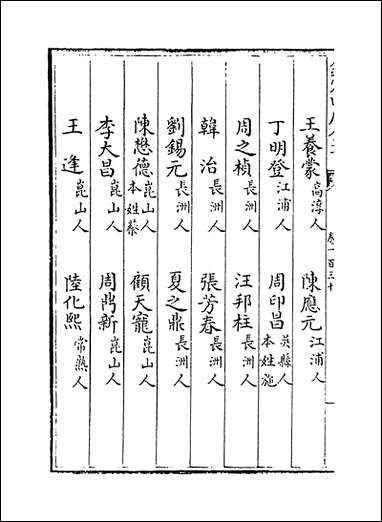 王養蒙高淳人 陳應元江浦人
丁明登江浦人 周印昌吳縣人本姓施
周之楨長洲人 汪邦柱長洲人
韓治長洲人 張芳春長洲人
劉錫元長洲人 夏之鼎長洲人
陳懋德崑山人本姓蔡 顧天寵崑山人
李大昌崑山人 周鼑新崑山人
王逢崑山人 陸化熙常熟人
卷一百三十